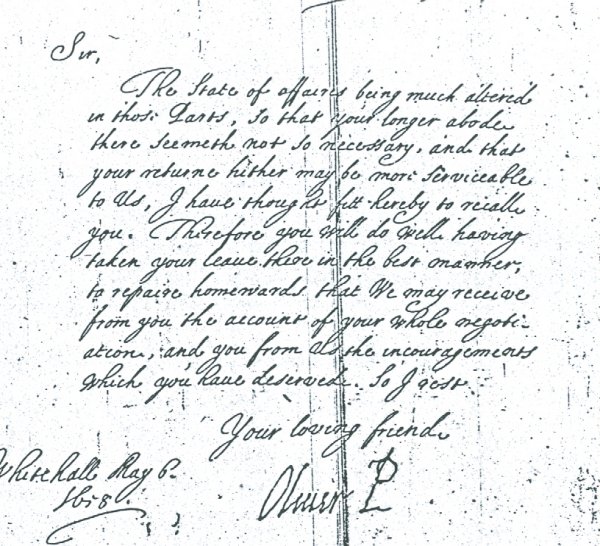 Sir,
The State of affaires being much altered
in those Parts, so that your longer abode
there seemeth not so necessary, and that
your returne hither may be more serviceable
to Us, I have thought fitt hereby to recall
you. Therefore you will do well having
taken your leave there in the best manner,
to repaire homewards that We may receive
from you the account of your whole negoti-
ation, and you from Us the incouragements
which you have deserved. So I rest
Your loving friend
Whitehall May 6.
1658.
Oliver P